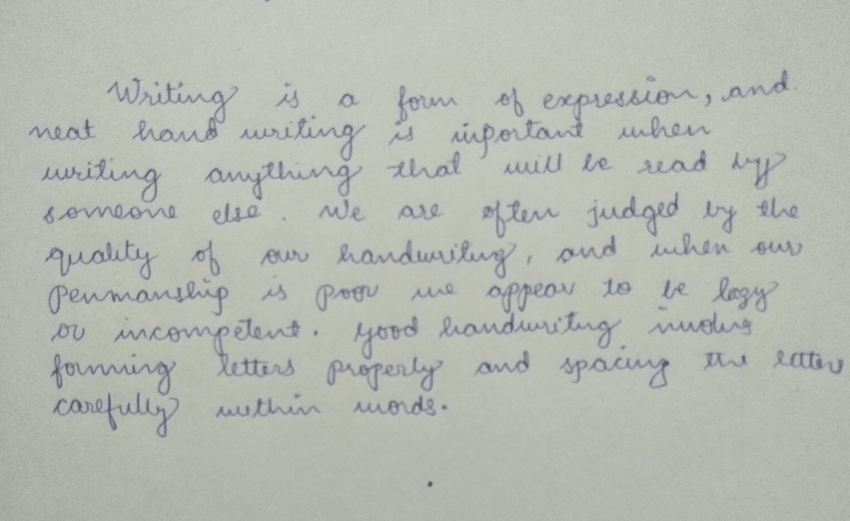 Writing is a form of expression, and
neat hand writing is inportant when
writing anything that will be read by
someone else. We are often judged by the
quality of our handwriting, and when our
Penmanship is poor we appear to be lazy
or incompetent. Good handwriting involves
forming letters properly and spacing the letters
carefully within words.